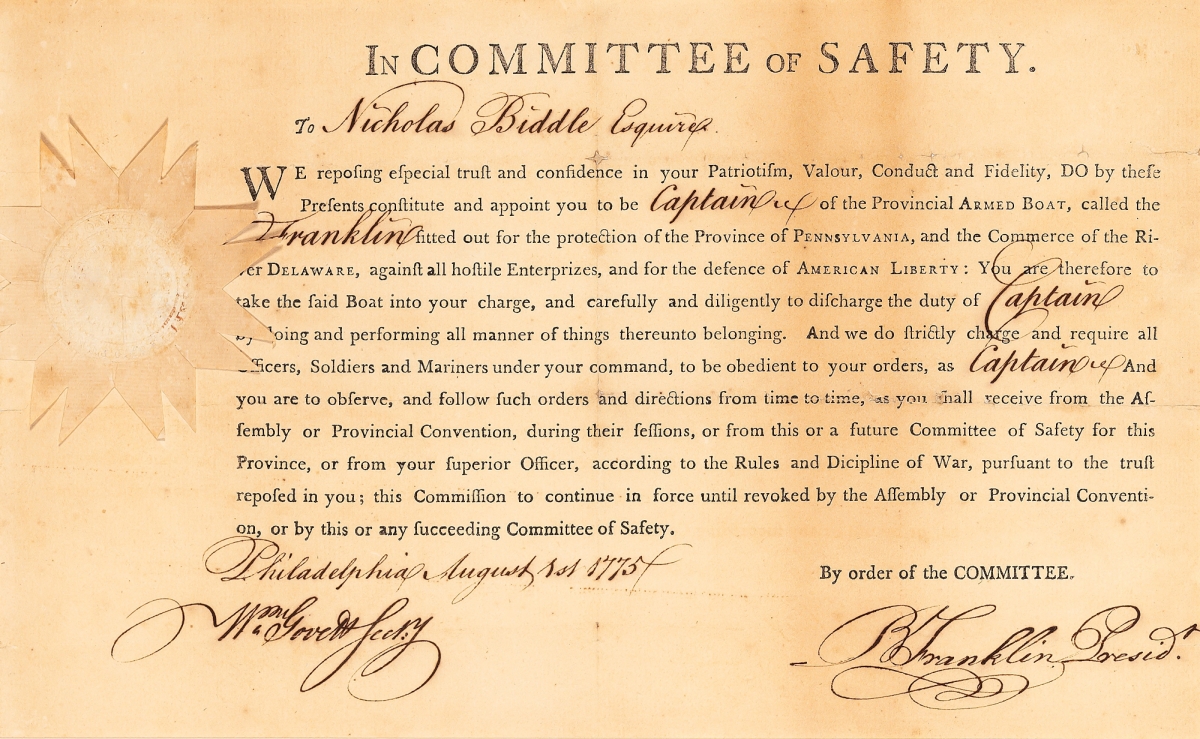 In COMMITTEE of SAFETY.
To Nicholas Biddle Esquire
WE repoſing eſpecial truſt and confidence in your Patriotiſm, Valour, Conduct and Fidelity, DO by theſe
Preſents conſtitute and appoint you to be Captain of the Provincial ARMED BOAT, called the
Franklin fitted out for the protection of the Province of PENNSYLVANIA, and the Commerce of the Ri-
ver DELAWARE, againſt all hoſtile Enterprizes, and for the defence of AMERICAN LIBERTY: You are therefore to
take the ſaid Boat into your charge, and carefully and diligently to diſcharge the duty of Captain
by doing and performing all manner of things thereunto belonging. And we do ſtrictly charge and require all
Officers, Soldiers and Mariners under your command, to be obedient to your orders, as Captain And
you are to obſerve, and follow ſuch orders and directions from time to time, as you ſhall receive from the Aſ-
ſembly or Provincial Convention, during their ſeſſions, or from this or a future Committee of Safety for this
Province, or from your ſuperior Officer, according to the Rules and Dicipline of War, purſuant to the truſt
repoſed in you; this Commiſſion to continue in force until revoked by the Aſſembly or Provincial Conventi-
on, or by this or any ſucceeding Committee of Safety.
Philadelphia August 1st 1775
By order of the COMMITTEE.
Wm Govett Secry
B Franklin Presidt.